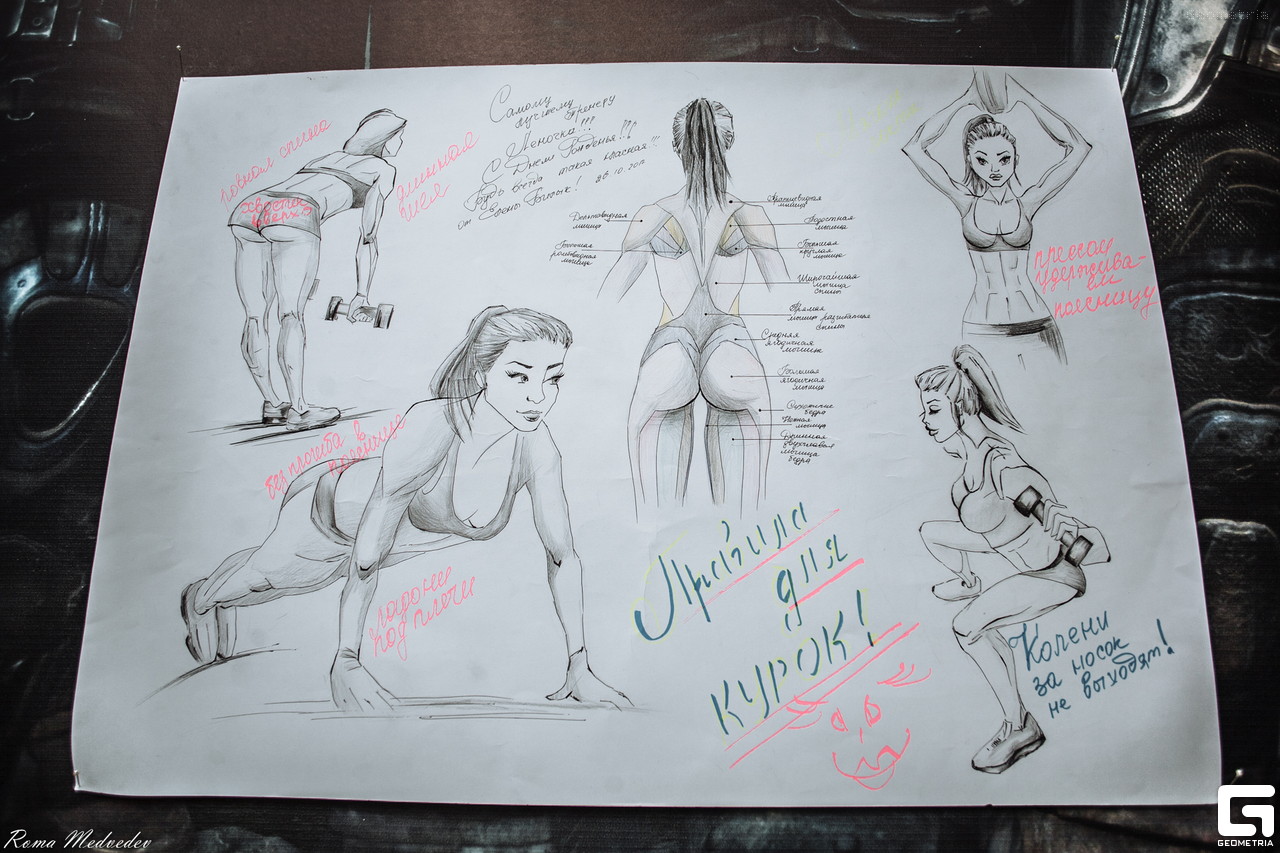 Самому
лучшему
тренеру
Леночка!!!
С Днем Рожденья!!!
Будь всегда такая классная!!!
от Елены
ровная спина
хвостом
вверх
длинная
шея
Дельтовидная
мышца
Большая
ромбовидная
мышца
Трапециевидная
мышца
Подостная
мышца
Большая
круглая
мышца
Широчайшая
мышца
спины
Прямая
мышца разгибающая
спины
Средняя
ягодичная
мышца
Большая
ягодичная
мышца
бедра
Нежная
мышца
Длинная
двухглавая
мышца
бедра
прессом
удержива-
ем
поясницу
без прогиба в
пояснице
ладони
под плечи
Правила
для
курок!
Колени
за носок
не выходят!
Roma Medvedev
GEOMETRIA